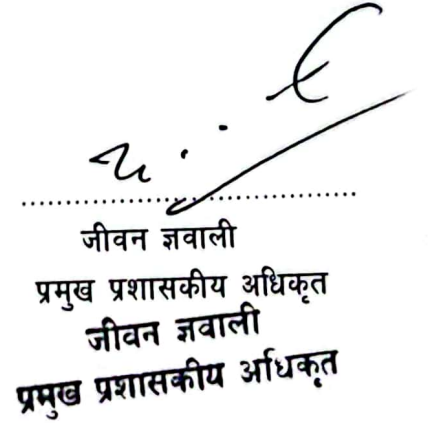 जीवन ज्ञवाली
प्रमुख प्रशासकीय अधिकृत
जीवन ज्ञवाली
प्रमुख प्रशासकीय अधिकृत